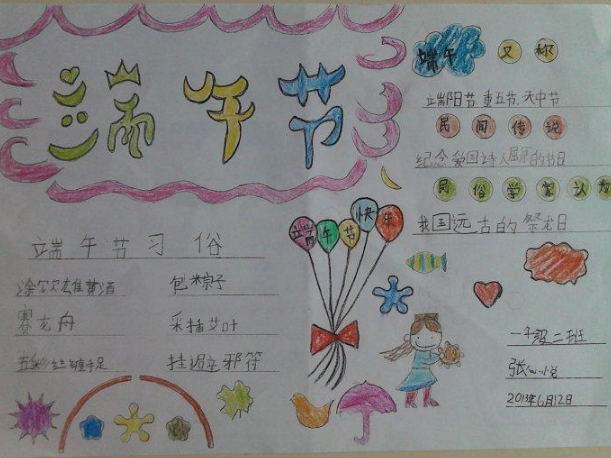 端午节
端午 又称
端阳节、重五节、天中节
民间传说
纪念爱国诗人屈原的节日
民俗学家认为
我国远古的祭龙日
端午节快乐
端午节习俗
涂饮雄黄酒 包粽子
赛龙舟 采插艾叶
手足 挂避邪符
一年级二班
张
2013年6月12日